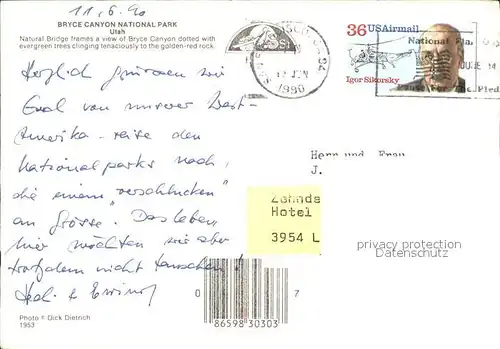 11.6.90
BRYCE CANYON NATIONAL PARK
Utah
Natural Bridge frames a view of Bryce Canyon dotted with
evergreen trees clinging tenaciously to the golden-red rock.
Herzlich grüssen wir
Euch von unserer West-
Amerika-reise den
nationalparks nach,
die einem "verschlucken"
an Grösse. Das leben
hier möchten wir aber
trotzdem nicht tauschen!
Photo © Dick Dietrich
1953
1990
36 USAirmail
Igor Sikorsky
National
JUNE 14
Pause For The Pled
Herr und Frau
J.
Zehnde
Hotel
3954 L
privacy protection
Datenschutz
0 86598 30303 7